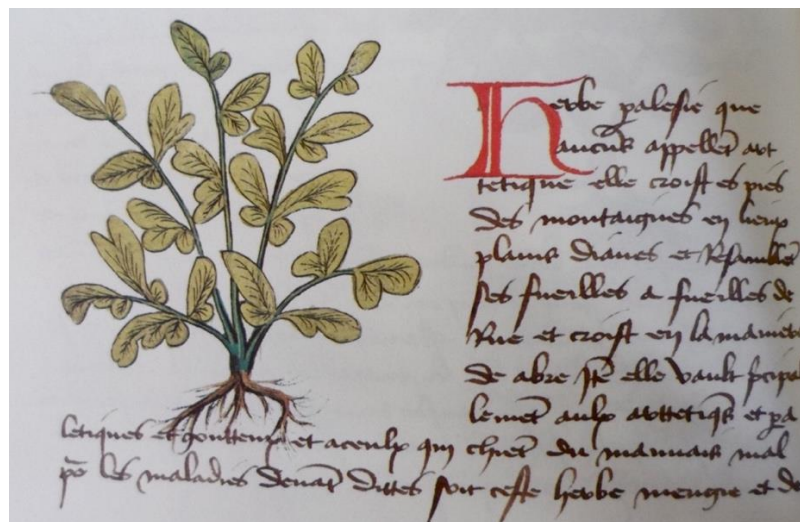 Herbe palesie que
aucuns appellet art
tetique elle croist es pies
des montaignes en lieux
plains diaues et Resamblet
ses fueilles a fueilles de
Rue et croist en la maniere
de abre Ite elle vault pcipa
lemet aulx artetiqs et pa
letiques et goutteux et aceulx qui chieet du mauuais mal
po les maladies deuat dittes soit ceste herbe mengie et de